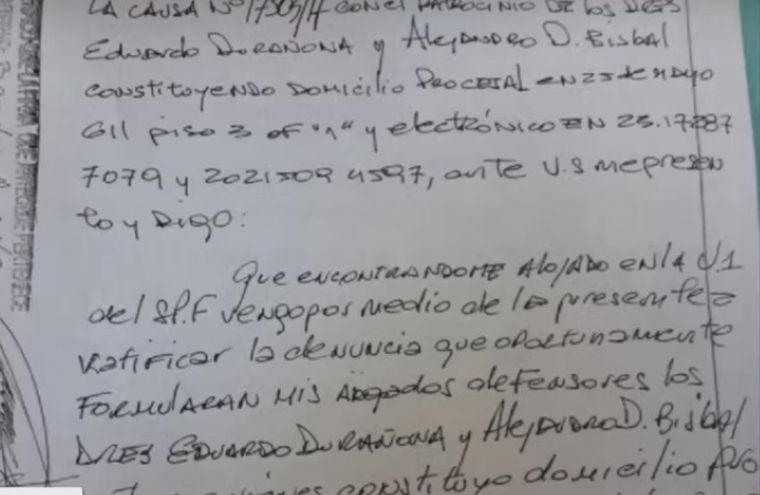 LA CAUSA Nº 17305/14 CON EL PATROCINIO DE los DRES
Eduardo DURAÑONA y Alejandro D. Bisbal
constituyendo domicilio PROCESAL en 25 de mayo
611 piso 3 of "1" y electrónico EN 23.17287
7079 y 2021509 4597, ante V.S me presen
to y DIGO:
Que encontrandome Alojado en la U1
del SP.F vengo por medio de la presente a
ratificar la denuncia que oportunamente
FORMULARAN MIS Abogados defensores los
DRES EDUARDO DURAÑONA y Alejandro D. Bisbal
constituyo domicilio